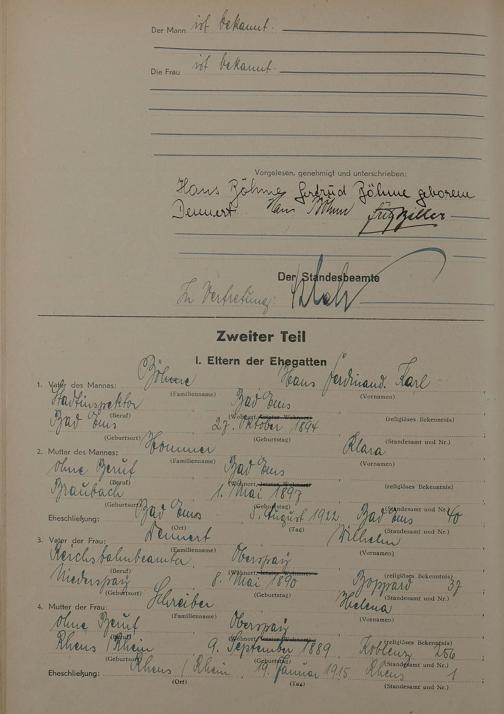 Der Mann ist bekannt.
Die Frau ist bekannt
Vorgelesen, genehmigt und unterschrieben:
Hans Böhme Gertrud Böhme geborene
Dennert. Hans Böhme
Der Standesbeamte
In Vertretung:
Zweiter Teil
I. Eltern der Ehegatten
Böhme Hans Ferdinand Karl
1. Vater des Mannes: (Familienname) (Vornamen)
Stadtinspektor Bad Ems
(Beruf) (Wohnort, letzter Wohnort) (religiöses Bekenntnis)
Bad Ems 27. Oktober 1894
(Geburtsort) (Geburtstag) (Standesamt und Nr.)
Hommer Klara
2. Mutter des Mannes: (Familienname) (Vornamen)
ohne Beruf Bad Ems
(Beruf) (Wohnort, letzter Wohnort) (religiöses Bekenntnis)
Braubach 1. Mai 1897
(Geburtsort) (Geburtstag) (Standesamt und Nr.)
Eheschließung: Bad Ems 5. August 1922 Bad Ems 40
(Ort) (Tag) (Standesamt und Nr.)
Dennert Wilhelm
3. Vater der Frau: (Familienname) (Vornamen)
Reichsbahnbeamter Oberspay
(Beruf) (Wohnort, letzter Wohnort) (religiöses Bekenntnis)
Niederspay 8. Mai 1890 Boppard 37
(Geburtsort) (Geburtstag) (Standesamt und Nr.)
Schreiber Helena
4. Mutter der Frau: (Familienname) (Vornamen)
ohne Beruf Oberspay
(Beruf) (Wohnort, letzter Wohnort) (religiöses Bekenntnis)
Rhens / Rhein 9. September 1889 Koblenz 256
(Geburtsort) (Geburtstag) (Standesamt und Nr.)
Eheschließung: Rhens / Rhein 19. Januar 1915 Rhens 1
(Ort) (Tag) (Standesamt und Nr.)